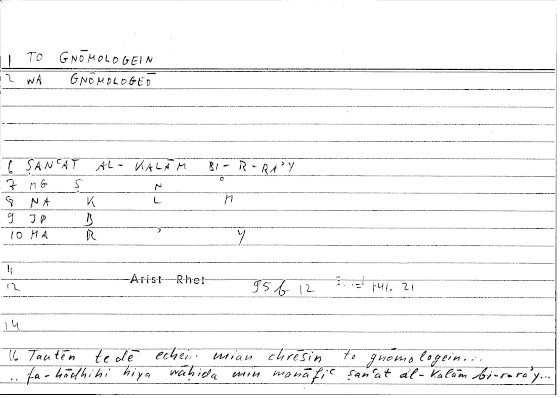 1 TO GNŌMOLOGEIN
2 WA GNŌMOLOGEŌ
6 ṢANʿAT AL-KALĀM BI-R-RAʾY
7 MG Ṣ N ʿ
8 NA K L M
9 JP B
10 MA R ʾ Y
11
12 Arist Rhet 95b 12 141. 21
14
16 Tautēn te dē echei.. mian chrēsin to gnōmologein...
.. fa-hādhihi hiya wāḥida min manāfiʿ ṣanʿat al-kalām bi-r-raʾy...